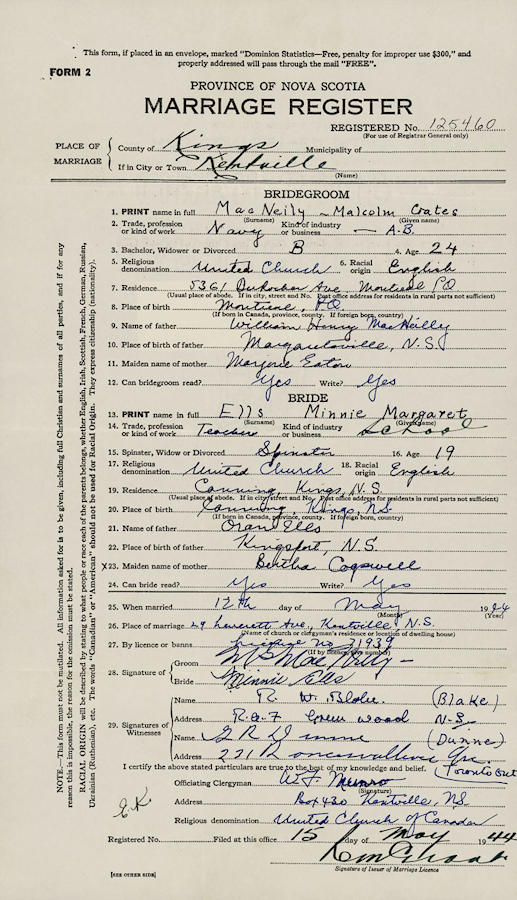 This form, if placed in an envelope, marked "Dominion Statistics—Free, penalty for improper use $300," and
properly addressed will pass through the mail "FREE".
FORM 2
PROVINCE OF NOVA SCOTIA
MARRIAGE REGISTER
REGISTERED No. 125460
(For use of Registrar General only)
PLACE OF MARRIAGE
County of Kings Municipality of
If in City or Town Kentville
(Name)
BRIDEGROOM
1. PRINT name in full MacNeily - Malcolm Crates
(Surname) (Given name)
2. Trade, profession or kind of work Navy Kind of industry or business — A.B.
3. Bachelor, Widower or Divorced B 4. Age 24
5. Religious denomination United Church 6. Racial origin English
7. Residence 5361 Ave. Montreal PQ
(Usual place of abode. If in city, street and No. Post office address for residents in rural parts not sufficient)
8. Place of birth Montreal, P.Q.
(If born in Canada, province, county. If foreign born, country)
9. Name of father William Henry MacNeilly
10. Place of birth of father Margaretsville, N.S.
11. Maiden name of mother Marjorie Eaton
12. Can bridegroom read? Yes Write? Yes
BRIDE
13. PRINT name in full Ells Minnie Margaret
(Surname) (Given name)
14. Trade, profession or kind of work Teacher Kind of industry or business School
15. Spinster, Widow or Divorced Spinster 16. Age 19
17. Religious denomination United Church 18. Racial origin English
19. Residence Canning, Kings, N.S.
(Usual place of abode. If in city street and No. Post office address for residents in rural parts not sufficient)
20. Place of birth Canning, Kings, N.S.
(If born in Canada, province, county. If foreign born, country)
21. Name of father Oran Ells
22. Place of birth of father Kingsport, N.S.
X23. Maiden name of mother Bertha Cogswell
24. Can bride read? Yes Write? Yes
25. When married 12th day of May 1944
(Month) (Year)
26. Place of marriage 29 Leverett Ave., Kentville, N.S.
(Name of church or clergyman's residence or location of dwelling house)
27. By licence or banns License No 31939
(If by licence, give number)
28. Signature of
Groom M C MacNeilly
Bride Minnie Ells
29. Signatures of Witnesses
Name R. W. Blake. (Blake)
Address R.R.7 Greenwood N.S.
Name G R Dunne (Dunne)
Address 221 Roncesvalles Ave.
I certify the above stated particulars are true to the best of my knowledge and belief. (Toronto Ont
Officiating Clergyman W. J. Munro
(Signature)
Address Box 430 Kentville, N.S.
Religious denomination United Church of Canada
E.K.
Registered No. Filed at this office 15 day of May 1944
Signature of Issuer of Marriage Licence
[SEE OTHER SIDE]
NOTE.—This form must not be mutilated. All information asked for is to be given, including full Christian and surnames of all parties, and if for any
reason this is impossible, the reason for the omission must be stated.
RACIAL ORIGIN will be described by stating to what people or race each of the parents belongs, whether English, Irish, Scottish, French, German, Russian,
Ukrainian (Ruthenian), etc. The words "Canadian" or "American" should not be used for Racial Origin. They express citizenship (nationality).